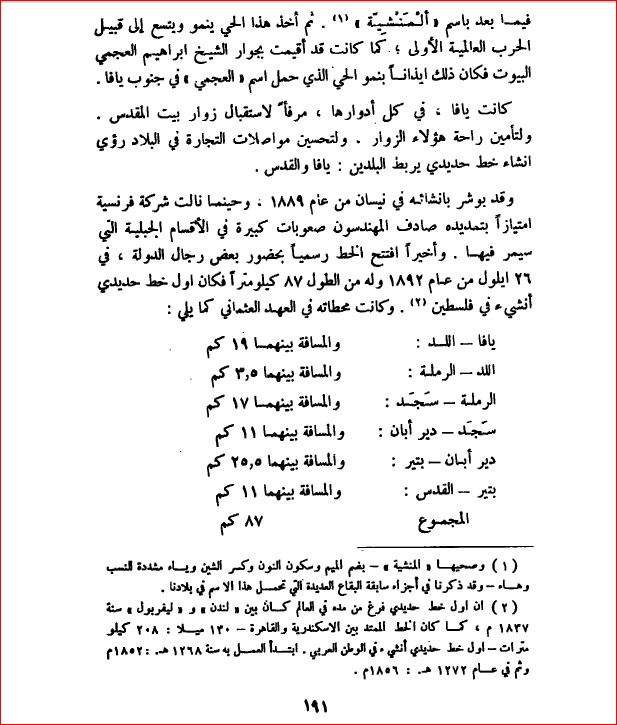 فيمـا بعد باسم « ألْمَنْشِيّة » (١) . ثم أخذ هذا الحي ينمو ويتسع إلى قبيـل
الحرب العالمية الأولى ؛ كما كانت قد أقيمت بجوار الشيخ ابراهيم العجمي
البيوت فكان ذلك ايذانـاً بنمو الحي الذي حمل اسم « العجمي » في جنوب يافا .
كانت يافا ، في كل أدوارها ، مرفأ لاستقبال زوار بيت المقدس .
ولتأمين راحة هؤلاء الزوار . ولتحسين مواصلات التجارة في البلاد رؤي
انشاء خط حديدي يربط البلدين : يافا والقدس .
وقد بوشر بانشائـه في نيسان من عام ١٨٨٩ ، وحينما نالت شركة فرنسية
امتيازاً بتمديده صادف المهندسون صعوبات كبيرة في الأقسام الجبلية التي
سيمر فيهـا . وأخيراً افتتح الخط رسميـاً بحضور بعض رجال الدولة ، في
٢٦ ايلول من عـام ١٨٩٢ وله من الطول ٨٧ كيلومتراً فكان اول خط حديدي
أنشيء في فلسطين (٢) . وكانت محطاته في العهد العثماني كما يلي :
يافا – اللـد : والمسافة بينهمـا ١٩ كم
اللد – الرملة : والمسافة بينهما ٣,٥ كم
الرملـة – سَجَـد : والمسافة بينهمـا ١٧ كم
سَجَد – دير أبان : والمسافة بينهمـا ١١ كم
دير أبـان – بتير : والمسافة بينهما ٢٥,٥ كم
بتير – القدس : والمسافة بينهما ١١ كم
المجموع ٨٧ كم
( ١ ) وصحيهـا « المنشية » – بضم الميم وسكون النون وكسر الشين ويـاء مشددة للنسب
وهـاء – وقد ذكرنا في أجزاء سابقة البقاع العديدة التي تحمـل هذا الاسم في بلادنا .
( ٢ ) ان اول خط حديدي فرغ من مده في العالم كـان بين « لندن » و « ليفربول » سنة
١٨٣٧ م ، كمـا كان الخط الممتد بين الاسكندرية والقاهرة – ١٣٠ ميـلا : ٢٠٨ كيلو
مترات – اول خط حديدي أنشيء في الوطن العربي . ابتـدأ العمـل به سنة ١٢٦٨ هـ . : ١٨٥٢م
وتم في عـام ١٢٧٢ هـ . : ١٨٥٦م .
١٩١